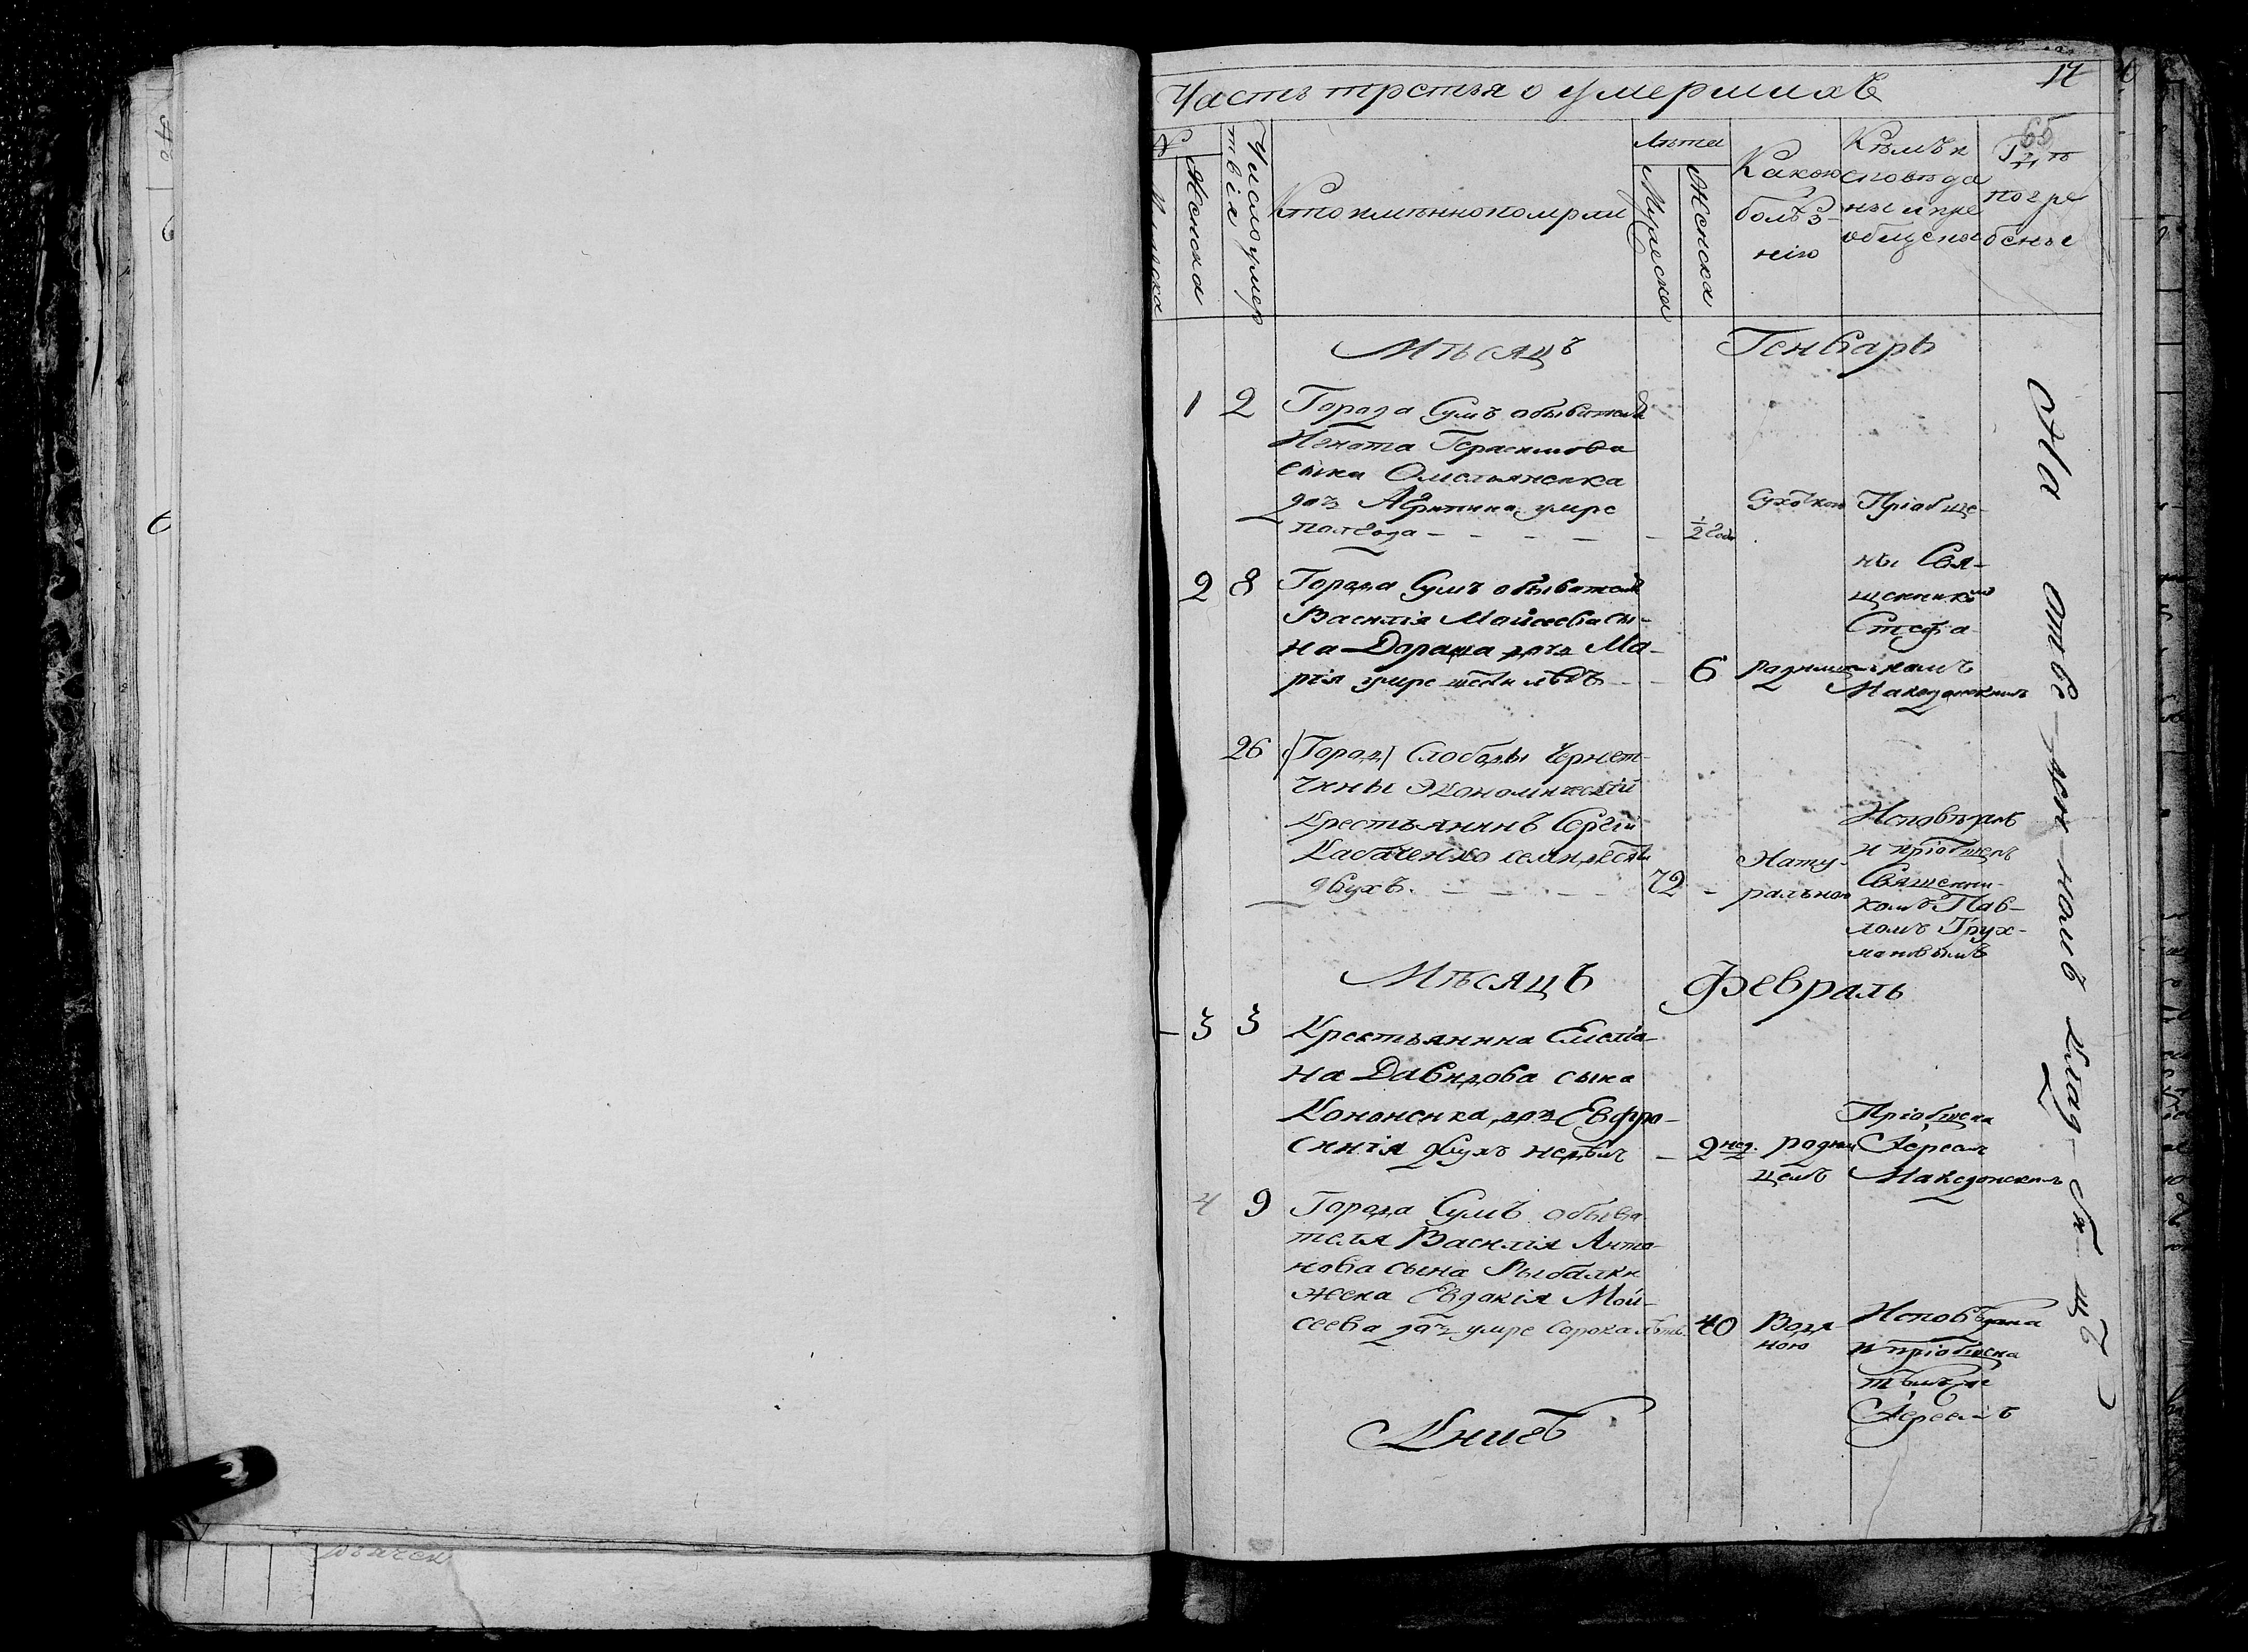 Часть третья о умершихъ
17
65
Мужеска
Женска
Число умер
твія
Кто имѣнно померли
Лѣта
Мужеска
Женска
Какою
болѣз-
нію
Кѣмъ и
сповѣда
ны и прі
общены
Гдѣ
погре
бены
Мѣсяцъ Генварь
1 2 Города Сумъ обывателя
Игната Герасимова
сына Омельяненка
дочь Агрипина умре
полгода
1/2 года
Сухоткою
Пріобще-
ны Свя-
щенникомъ
Стефа-
номъ
Македонскимъ
2 8 Города Сумъ обывателя
Василія Мойсеева сы-
на Дораша дочь Ма-
рія умре шести лѣтъ
6 родимцемъ
26 (Город) Слободы Чернет-
чины Экономическій
Крестьянинъ Сергій
Кабаченко семидесяти
двухъ.
72
Нату-
ральною
Исповѣданъ
и пріобщенъ
Священни-
комъ Пав-
ломъ Грух-
мановымъ
Мѣсяцъ Февраль
3 3 Крестьянина Емеліа-
на Давидова сына
Кононенка дочь Евфро-
синія двухъ недѣль
2 нед.
родим
цемъ
Пріобщена
Іереемъ
Македонскимъ
4 9 Города Сумъ обыва-
теля Василія Анто-
нова сына Рыбалки
жена Евдокія Мой-
сеева дочь умре сорока лѣтъ
40
Водя
ною
Исповѣдана
и пріобщена
тѣмъ же
Іереемъ
На отве-ден-номъ клад-би-щѣ
Книгъ